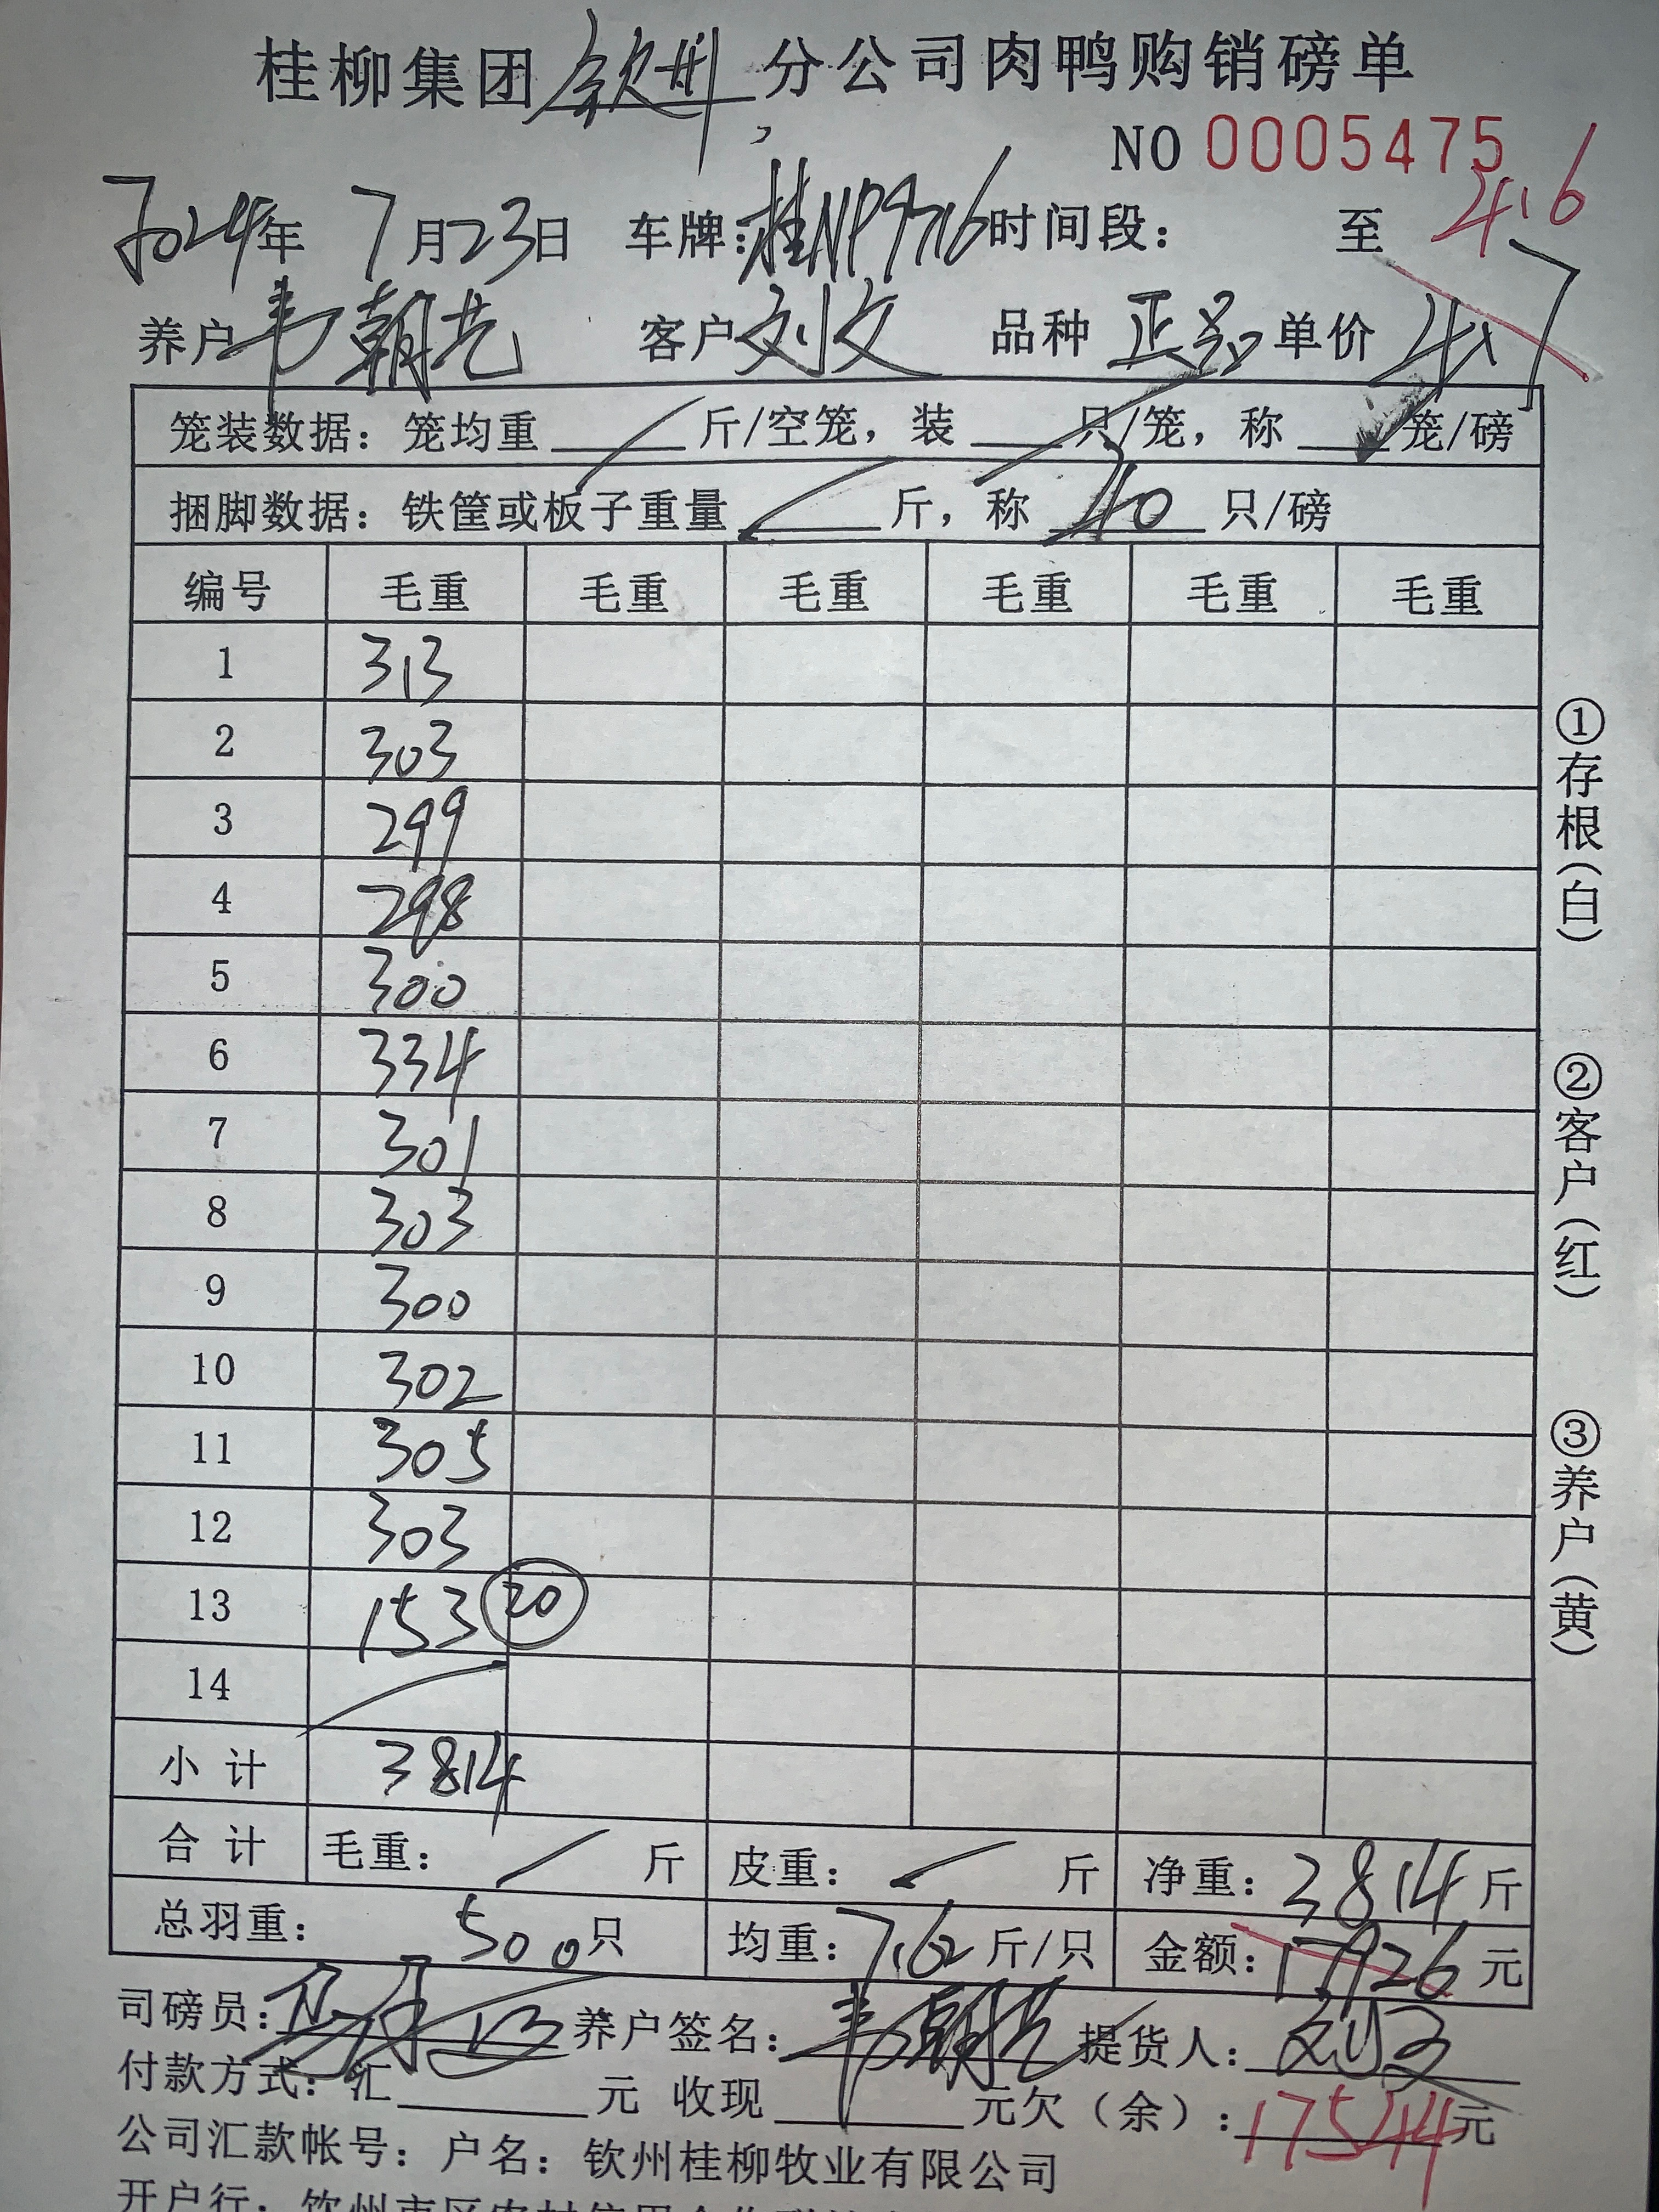 桂柳集团钦州分公司肉鸭购销磅单
NO 0005475
2024年 7月23日 车牌:桂NP9716时间段: 至 4.6
养户韦朝艺 客户刘文 品种 正品 单价 4.7
笼装数据:笼均重 斤/空笼,装 只/笼,称 笼/磅
捆脚数据:铁筐或板子重量 斤,称 40 只/磅
编号 毛重 毛重 毛重 毛重 毛重 毛重
1 313
2 303
3 299
4 298
5 300
6 334
7 301
8 303
9 300
10 302
11 305
12 303
13 153 20
14
小计 3814
合计 毛重: 斤 皮重: 斤 净重:3814斤
总羽重: 500只 均重:7.62斤/只 金额:17926元
司磅员: 养户签名:韦朝艺 提货人:刘文
付款方式:汇 元 收现 元欠(余):17544元
公司汇款帐号:户名:钦州桂柳牧业有限公司
开户行:钦州市区农村信用合作联社
①存根(白) ②客户(红) ③养户(黄)